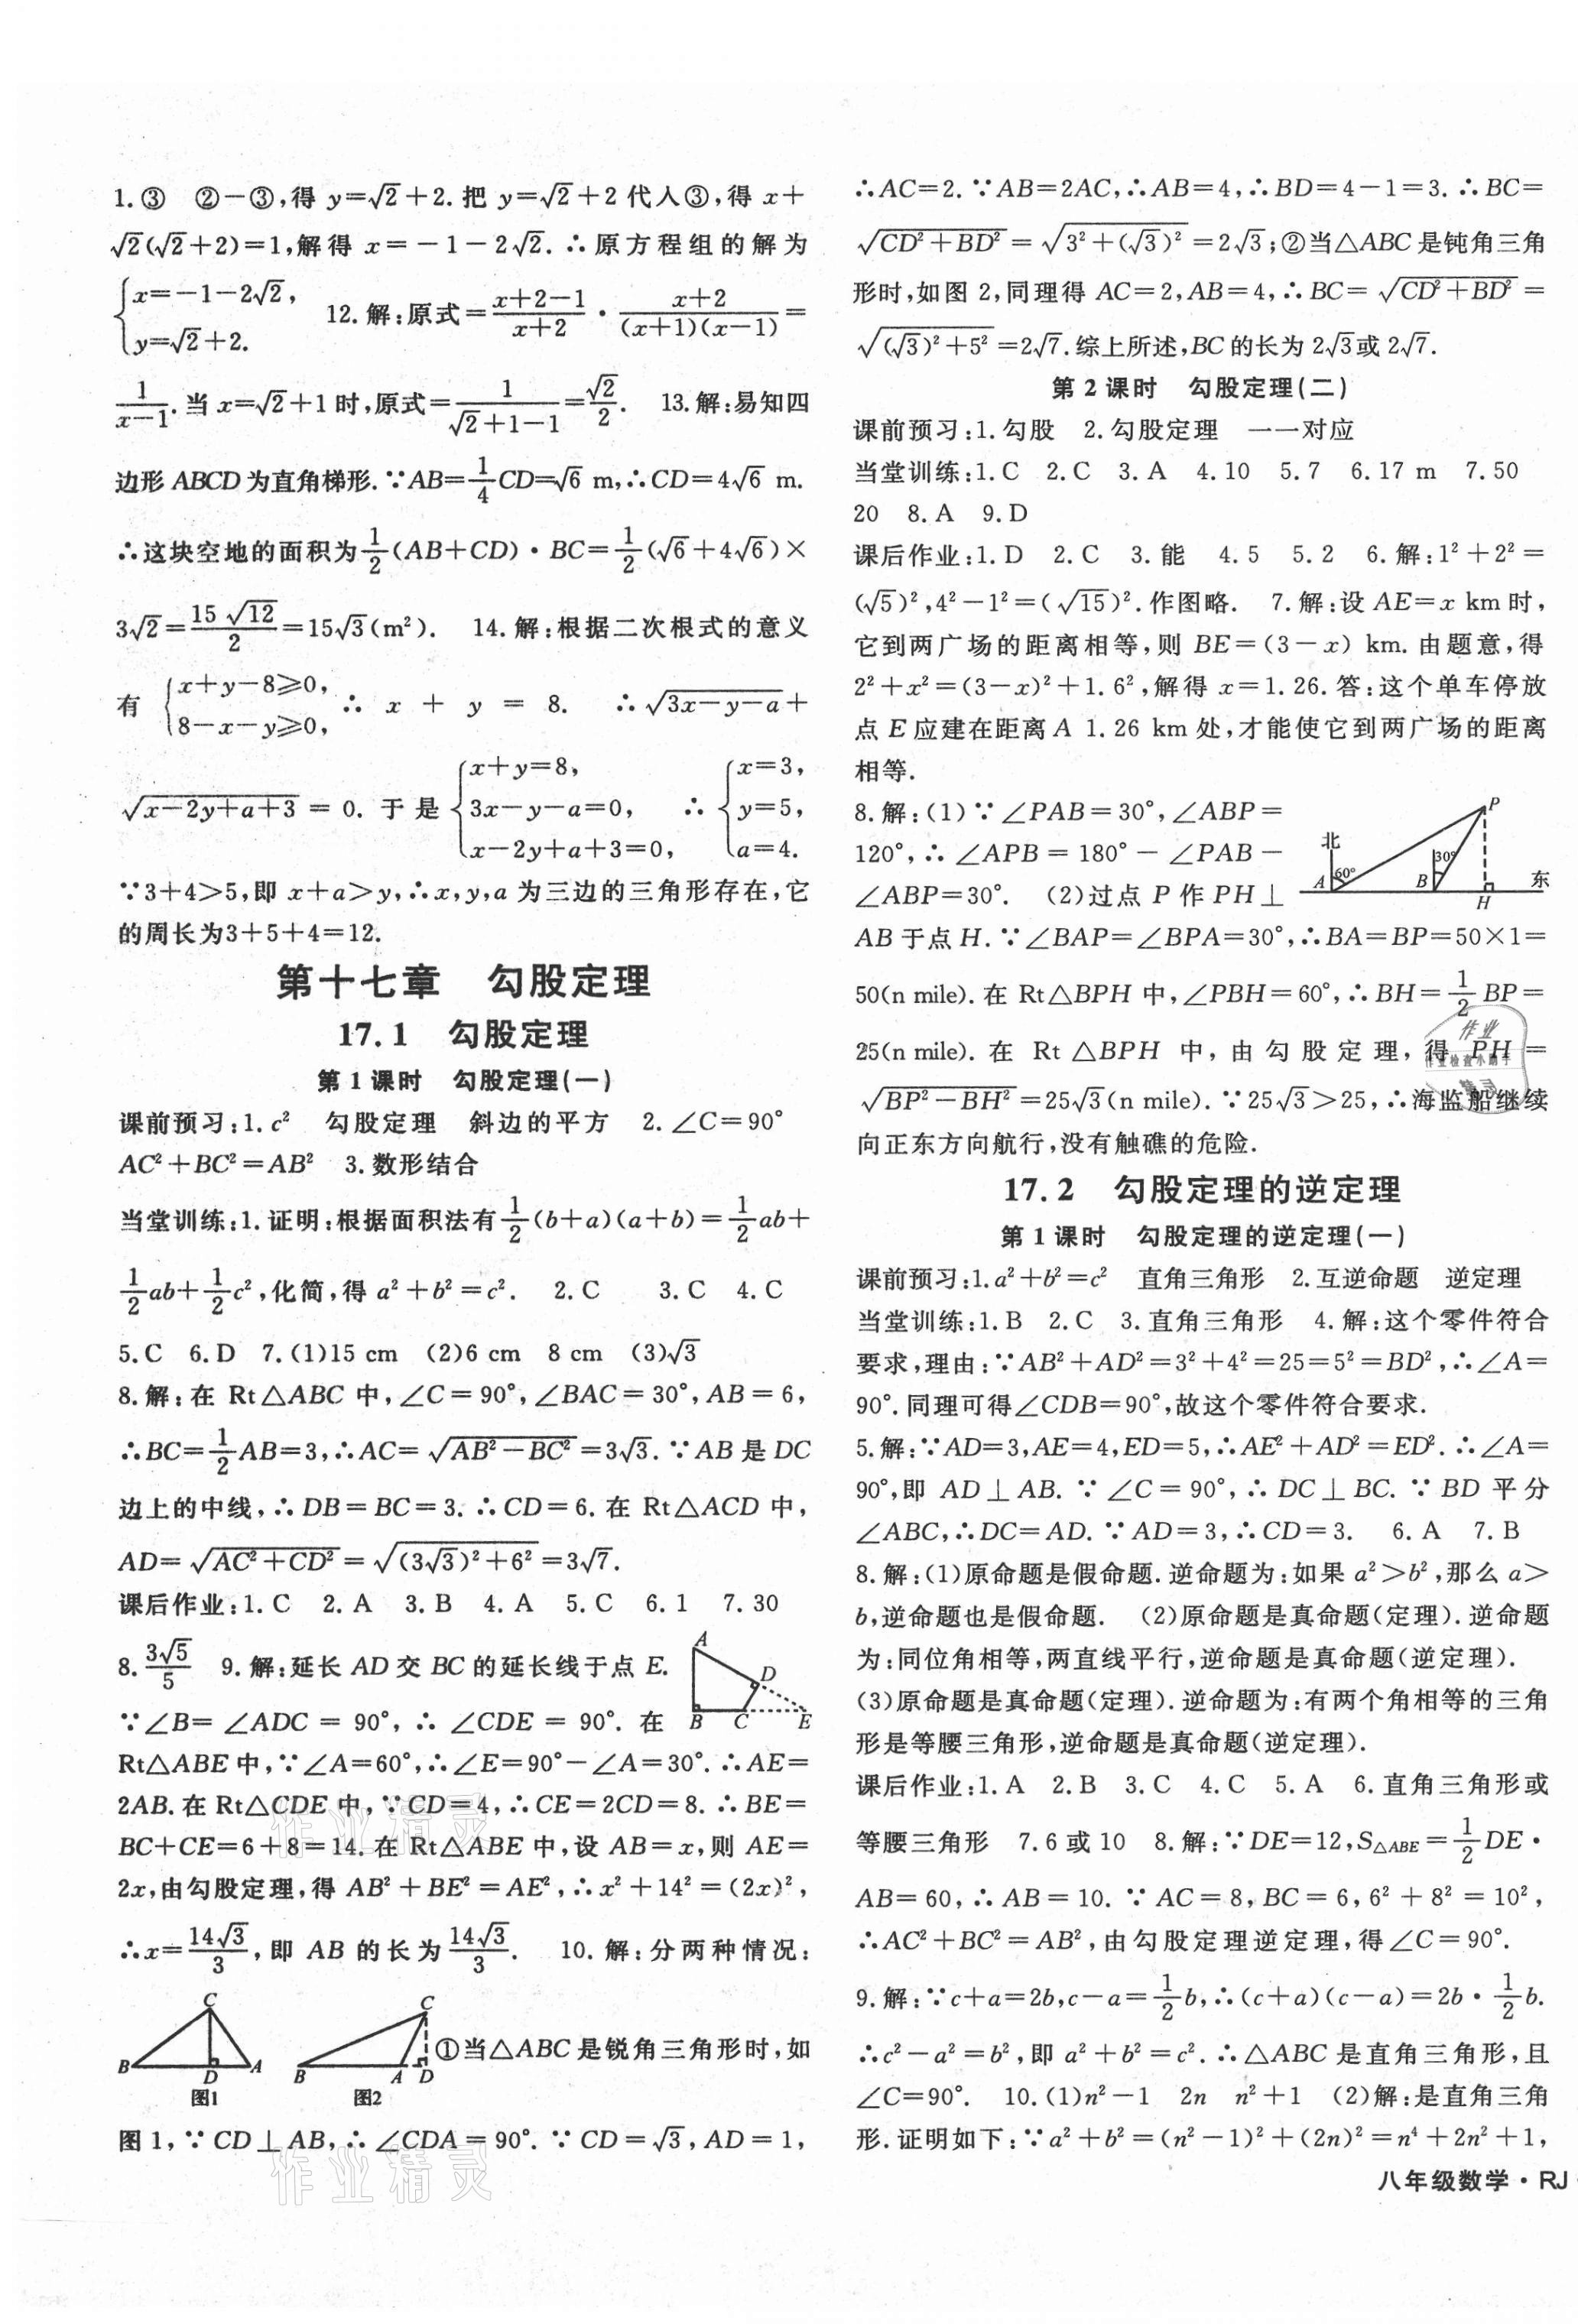 1.③　②－③,得 y=√2+2.把 y=√2+2 代人③,得 x+
√2(√2+2)=1,解得 x=－1－2√2.∴原方程组的解为
{x=－1－2√2, y=√2+2.　12.解:原式=(x+2－1)/(x+2)·(x+2)/((x+1)(x－1))=
1/(x－1).当 x=√2+1 时,原式=1/(√2+1－1)=√2/2.　13.解:易知四
边形 ABCD 为直角梯形.∵AB=1/4CD=√6 m,∴CD=4√6 m.
∴这块空地的面积为1/2(AB+CD)·BC=1/2(√6+4√6)×
3√2=15√12/2=15√3(m²).　14.解:根据二次根式的意义
有{x+y－8≥0, 8－x－y≥0, ∴ x + y = 8. ∴√(3x－y－a)+
√(x－2y+a+3) = 0. 于是{x+y=8, 3x－y－a=0, x－2y+a+3=0, ∴{x=3, y=5, a=4.
∵3+4>5,即 x+a>y,∴x,y,a 为三边的三角形存在,它
的周长为3+5+4=12.
第十七章　勾股定理
17.1　勾股定理
第1课时　勾股定理(一)
课前预习:1.c²　勾股定理　斜边的平方　2.∠C=90°
AC²+BC²=AB²　3.数形结合
当堂训练:1.证明:根据面积法有1/2(b+a)(a+b)=1/2ab+
1/2ab+1/2c²,化简,得 a²+b²=c².　2.C　3.C　4.C
5.C　6.D　7.(1)15 cm　(2)6 cm　8 cm　(3)√3
8.解:在 Rt△ABC 中,∠C=90°,∠BAC=30°,AB=6,
∴BC=1/2AB=3,∴AC=√(AB²－BC²)=3√3.∵AB 是 DC
边上的中线,∴DB=BC=3.∴CD=6.在 Rt△ACD 中,
AD=√(AC²+CD²)=√((3√3)²+6²)=3√7.
课后作业:1.C　2.A　3.B　4.A　5.C　6.1　7.30
8.3√5/5　9.解:延长 AD 交 BC 的延长线于点 E.
A
D
B C E
∵∠B= ∠ADC = 90°, ∴ ∠CDE = 90°. 在
Rt△ABE 中,∵∠A=60°,∴∠E=90°－∠A=30°.∴AE=
2AB.在 Rt△CDE 中,∵CD=4,∴CE=2CD=8.∴BE=
BC+CE=6+8=14.在 Rt△ABE 中,设 AB=x,则 AE=
2x,由勾股定理,得 AB²+BE²=AE²,∴x²+14²=(2x)²,
∴x=14√3/3,即 AB 的长为14√3/3.　10.解:分两种情况:
C
B D A
图1
C
B A D
图2
①当△ABC 是锐角三角形时,如
图1,∵CD⊥AB,∴∠CDA=90°.∵CD=√3,AD=1,
∴AC=2.∵AB=2AC,∴AB=4,∴BD=4－1=3.∴BC=
√(CD²+BD²)=√(3²+(√3)²)=2√3;②当△ABC 是钝角三角
形时,如图2,同理得 AC=2,AB=4,∴BC=√(CD²+BD²)=
√((√3)²+5²)=2√7.综上所述,BC的长为2√3或2√7.
第2课时　勾股定理(二)
课前预习:1.勾股　2.勾股定理　一一对应
当堂训练:1.C　2.C　3.A　4.10　5.7　6.17 m　7.50
20　8.A　9.D
课后作业:1.D　2.C　3.能　4.5　5.2　6.解:1²+2²=
(√5)²,4²－1²=(√15)².作图略.　7.解:设 AE=x km时,
它到两广场的距离相等,则 BE=(3－x) km.由题意,得
2²+x²=(3－x)²+1.6²,解得 x=1.26.答:这个单车停放
点 E 应建在距离 A 1.26 km 处,才能使它到两广场的距离
相等.
8.解:(1)∵∠PAB=30°,∠ABP=
120°,∴∠APB=180°－∠PAB－
∠ABP=30°.　(2)过点 P 作 PH⊥
P
北
60° 30°
A B H 东
AB 于点 H.∵∠BAP=∠BPA=30°,∴BA=BP=50×1=
50(n mile).在 Rt△BPH 中,∠PBH=60°,∴BH=1/2BP=
25(n mile).在 Rt△BPH 中,由勾股定理,得 PH=
√(BP²－BH²)=25√3(n mile).∵25√3>25,∴海监船继续
向正东方向航行,没有触礁的危险.
17.2　勾股定理的逆定理
第1课时　勾股定理的逆定理(一)
课前预习:1.a²+b²=c²　直角三角形　2.互逆命题　逆定理
当堂训练:1.B　2.C　3.直角三角形　4.解:这个零件符合
要求,理由:∵AB²+AD²=3²+4²=25=5²=BD²,∴∠A=
90°.同理可得∠CDB=90°,故这个零件符合要求.
5.解:∵AD=3,AE=4,ED=5,∴AE²+AD²=ED².∴∠A=
90°,即 AD⊥AB.∵∠C=90°,∴DC⊥BC.∵BD 平分
∠ABC,∴DC=AD.∵AD=3,∴CD=3.　6.A　7.B
8.解:(1)原命题是假命题.逆命题为:如果 a²>b²,那么 a>
b,逆命题也是假命题.　(2)原命题是真命题(定理).逆命题
为:同位角相等,两直线平行,逆命题是真命题(逆定理).
(3)原命题是真命题(定理).逆命题为:有两个角相等的三角
形是等腰三角形,逆命题是真命题(逆定理).
课后作业:1.A　2.B　3.C　4.C　5.A　6.直角三角形或
等腰三角形　7.6 或 10　8.解:∵DE=12,S△ABE=1/2DE·
AB=60,∴AB=10.∵AC=8,BC=6,6²+8²=10²,
∴AC²+BC²=AB²,由勾股定理逆定理,得∠C=90°.
9.解:∵c+a=2b,c－a=1/2b,∴(c+a)(c－a)=2b·1/2b.
∴c²－a²=b²,即 a²+b²=c².∴△ABC 是直角三角形,且
∠C=90°.　10.(1)n²－1　2n　n²+1　(2)解:是直角三角
形.证明如下:∵a²+b²=(n²－1)²+(2n)²=n⁴+2n²+1,
八年级数学·RJ
作业精灵
作业精灵
作业
作业检查小助手
精灵